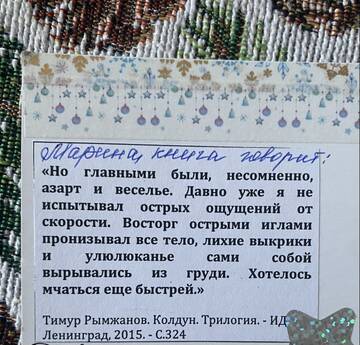 Марина, книга говорит:
«Но главными были, несомненно,
азарт и веселье. Давно уже я не
испытывал острых ощущений от
скорости. Восторг острыми иглами
пронизывал все тело, лихие выкрики
и улюлюканье сами собой
вырывались из груди. Хотелось
мчаться еще быстрей.»
Тимур Рымжанов. Колдун. Трилогия. - ИД
Ленинград, 2015. - С.324